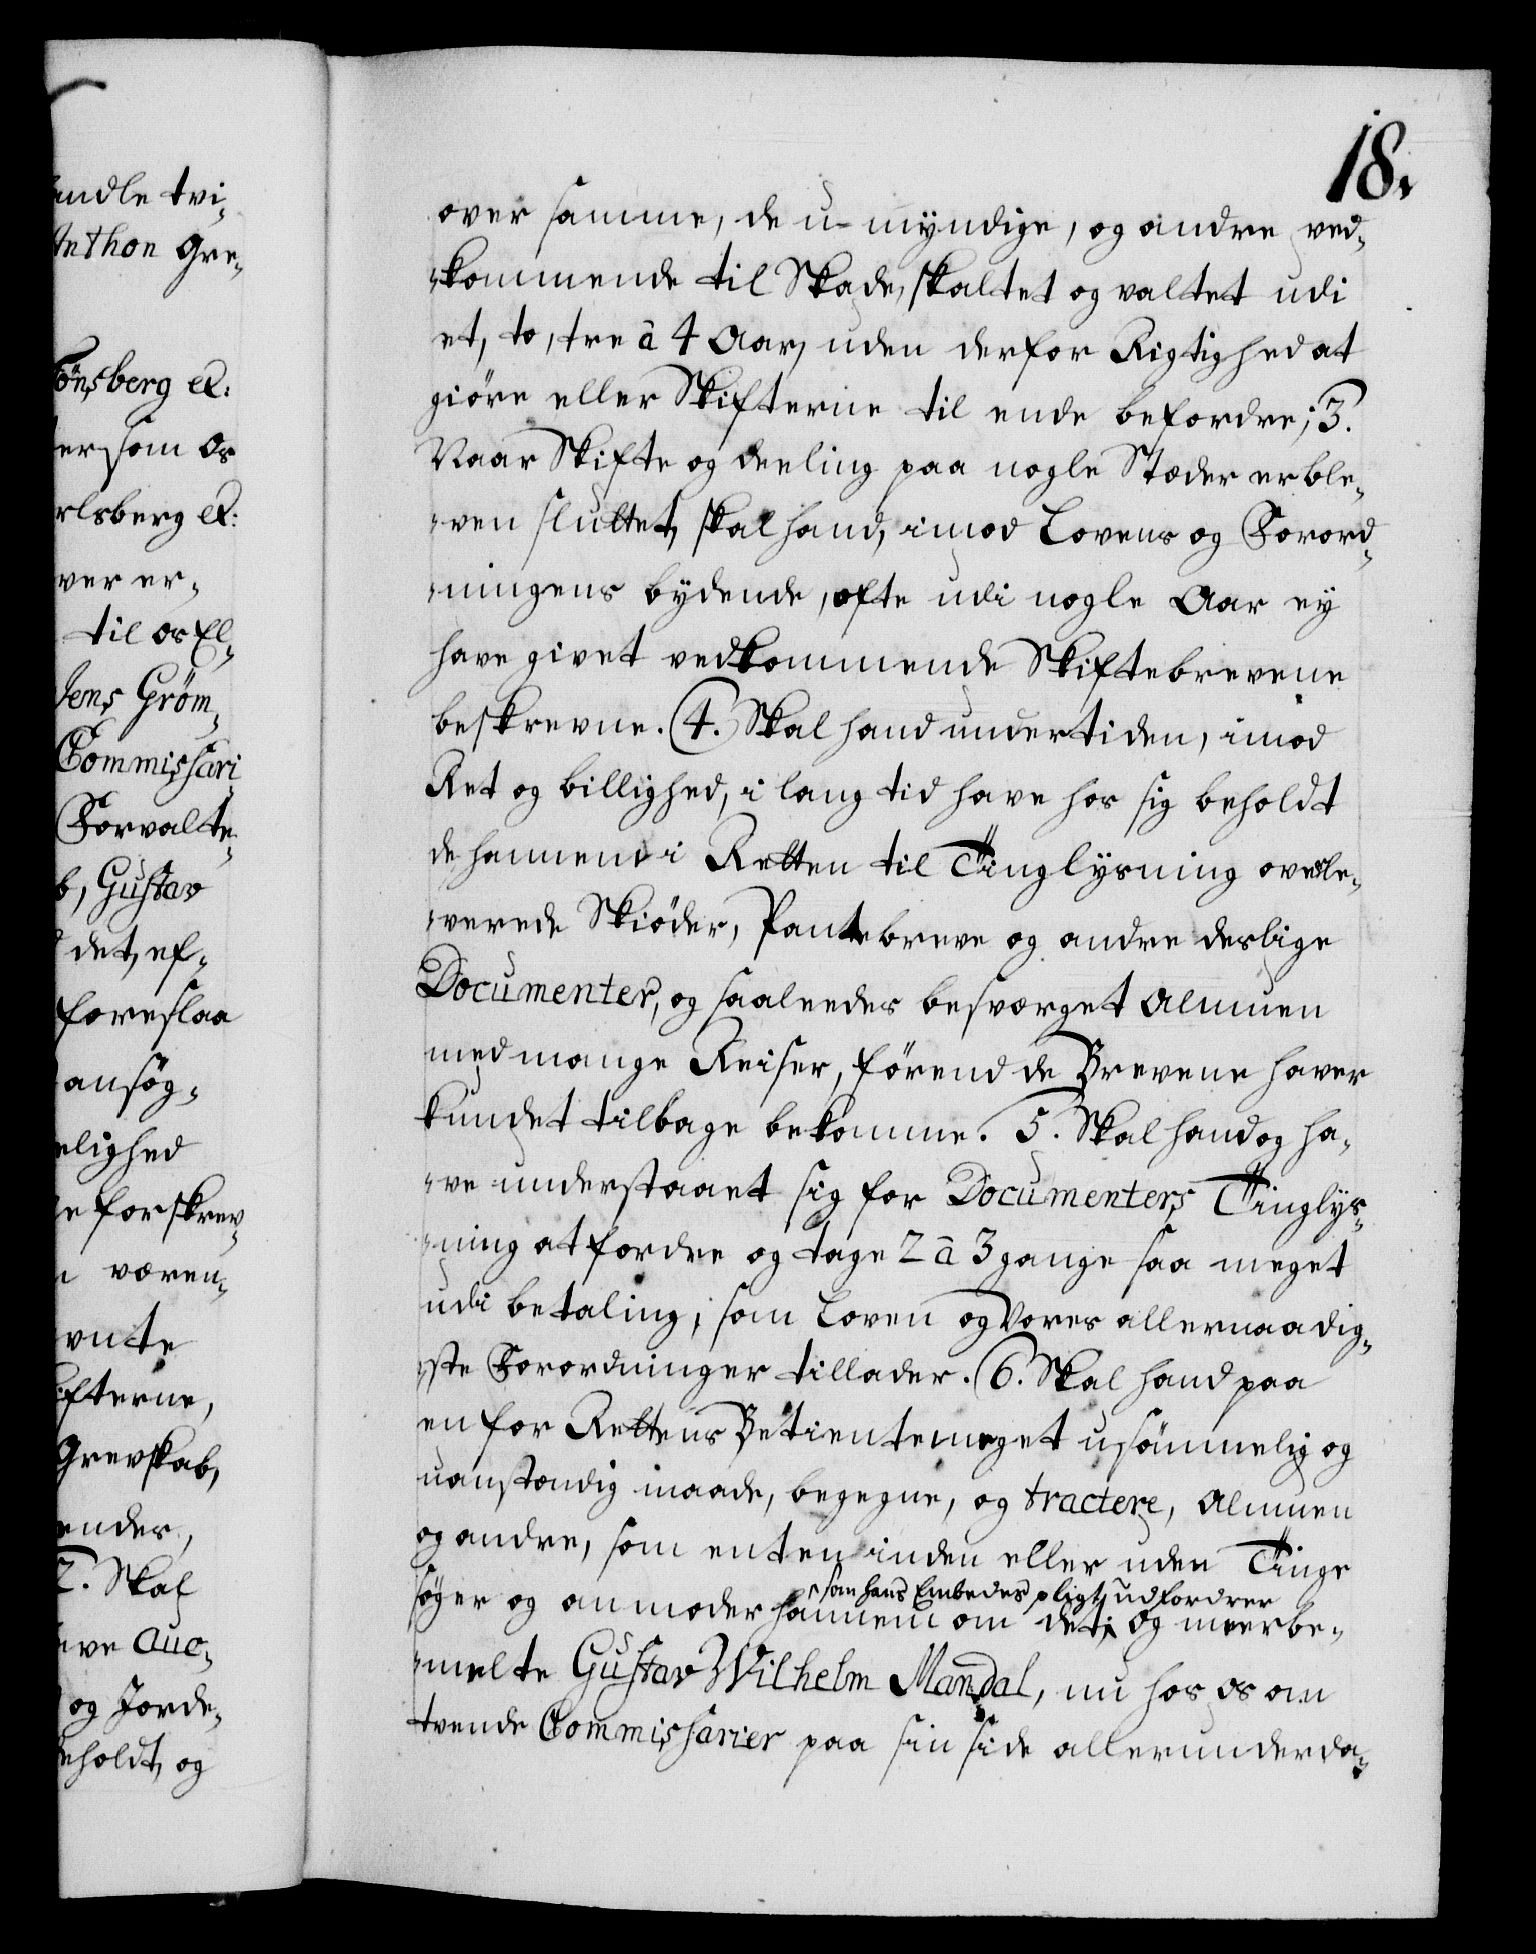 18.
andle tvi-
Anthon Gre-
Tönsberg &:
ersom os
rlsberg &:
ver er-
til os El-
Jens Gröm-
Commissari
Forvalte-
b, Gustav
det, ef-
foreslaa
ansög-
elighed
e forskrev-
n væren-
vnte
ifterne,
Grevskab,
ender,
2. Skal
ve Auc-
og Jorde-
eholdt, og
over samme, de u-myndige, og andre ved-
kommende til Skade, skaltet og valtet udi
et, to, tre à 4 Aar, uden derfor Rigtighed at
giöre eller Skifterne til ende befordre; 3.
Naar Skifte og deeling paa nogle Stæder er ble-
ven sluttet, skal hand, imod Lovens og Forord-
ningens bydende, ofte udi nogle Aar ey
have givet vedkommende Skiftebrevene
beskrevne. 4. Skal hand undertiden, imod
Ret og billighed, i lang tid have hos sig beholdt
de hannem i Retten til Tinglysning overle-
verede Skiöder, Pantebreve og andre deslige
Documenter, og saaleedes besværget Almuen
med mange Reiser, förend de Brevene haver
kundet tilbage bekomme. 5. Skal hand og ha-
ve understaaet sig for Documenters Tinglys-
ning at fordre og tage 2 à 3 gange saa meget
udi betaling, som Loven og Vores allernaadig-
ste Forordninger tillader. 6. Skal hand paa
en for Rettens Betiente meget usömmelig og
uanstændig maade, begegne, og tractere, Almuen
og andre, som enten inden eller uden Tinge
söger og anmoder hannem om det, som hans Embedes pligt udfordrer
og meerbe-
melte Gustav Wilhelm Mandal, nu hos os om
tvende Commissarier paa sin side allerunderda-